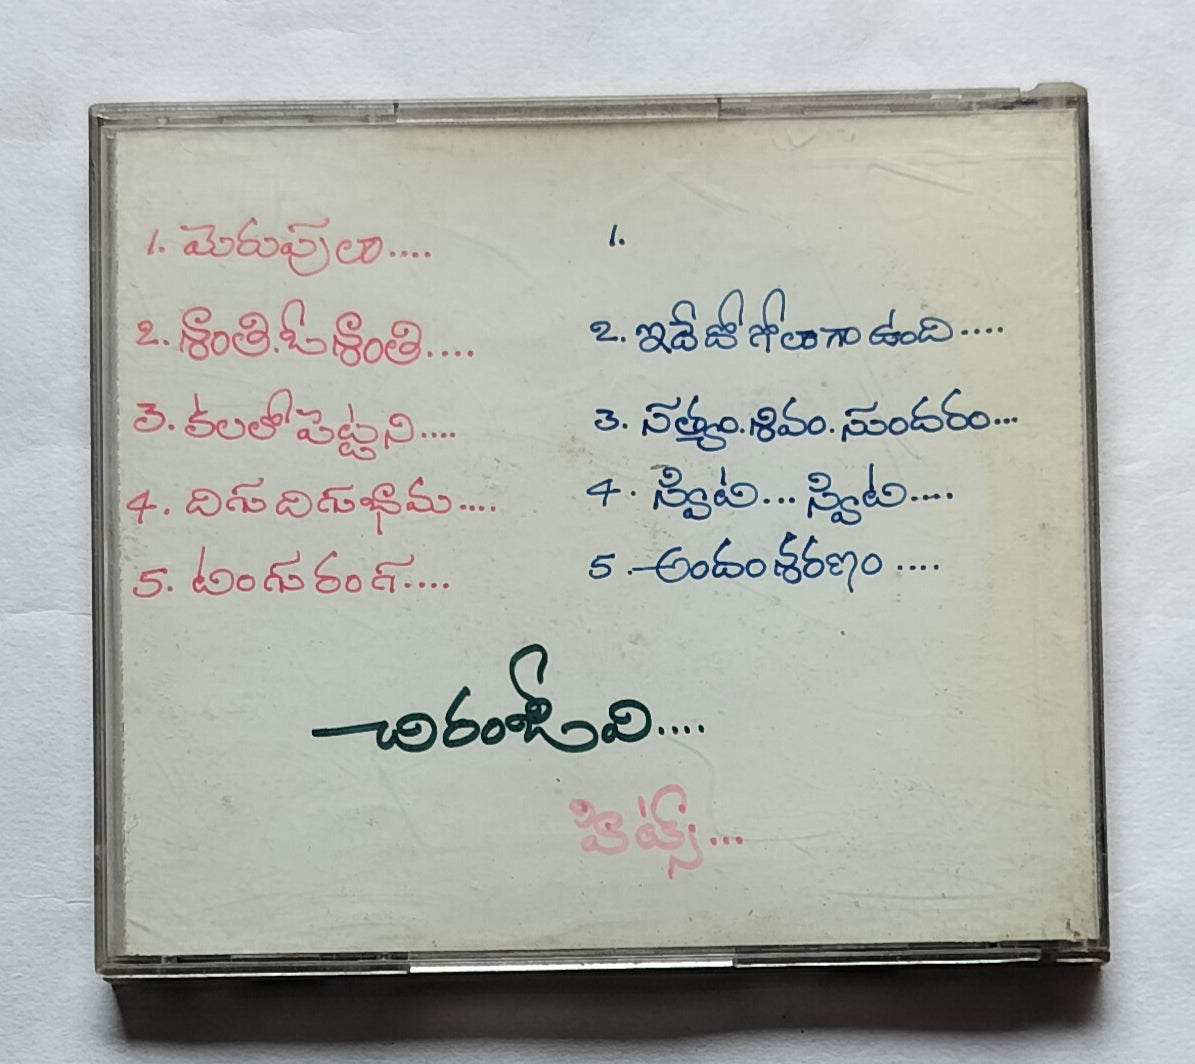 1. మెరుపులా....
2. శాంతి.ఓ శాంతి....
3. కలలో పెట్టని....
4. దిగు దిగు భామ....
5. టంగు రంగ్....
1.
2. ఇదేదో గోలాగా ఉంది....
3. సత్యం.శివం.సుందరం...
4. స్వీట్... స్వీట్....
5. అందం శరణం ....
చిరంజీవి....
హిట్స్...